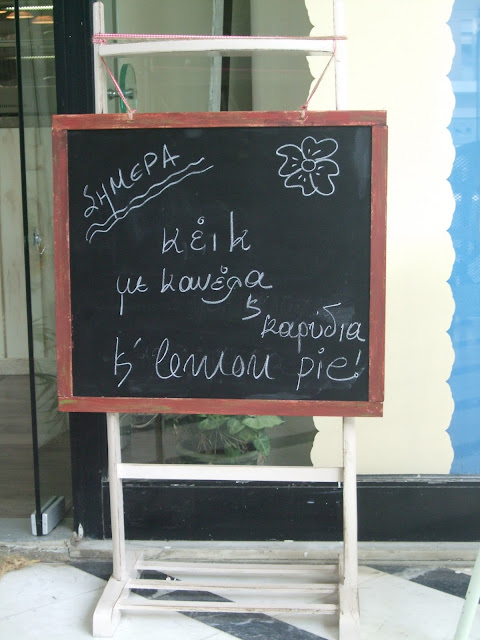 ΣΗΜΕΡΑ
κέικ
με κανέλα
ϗ καρύδια
ϗ lemon pie!